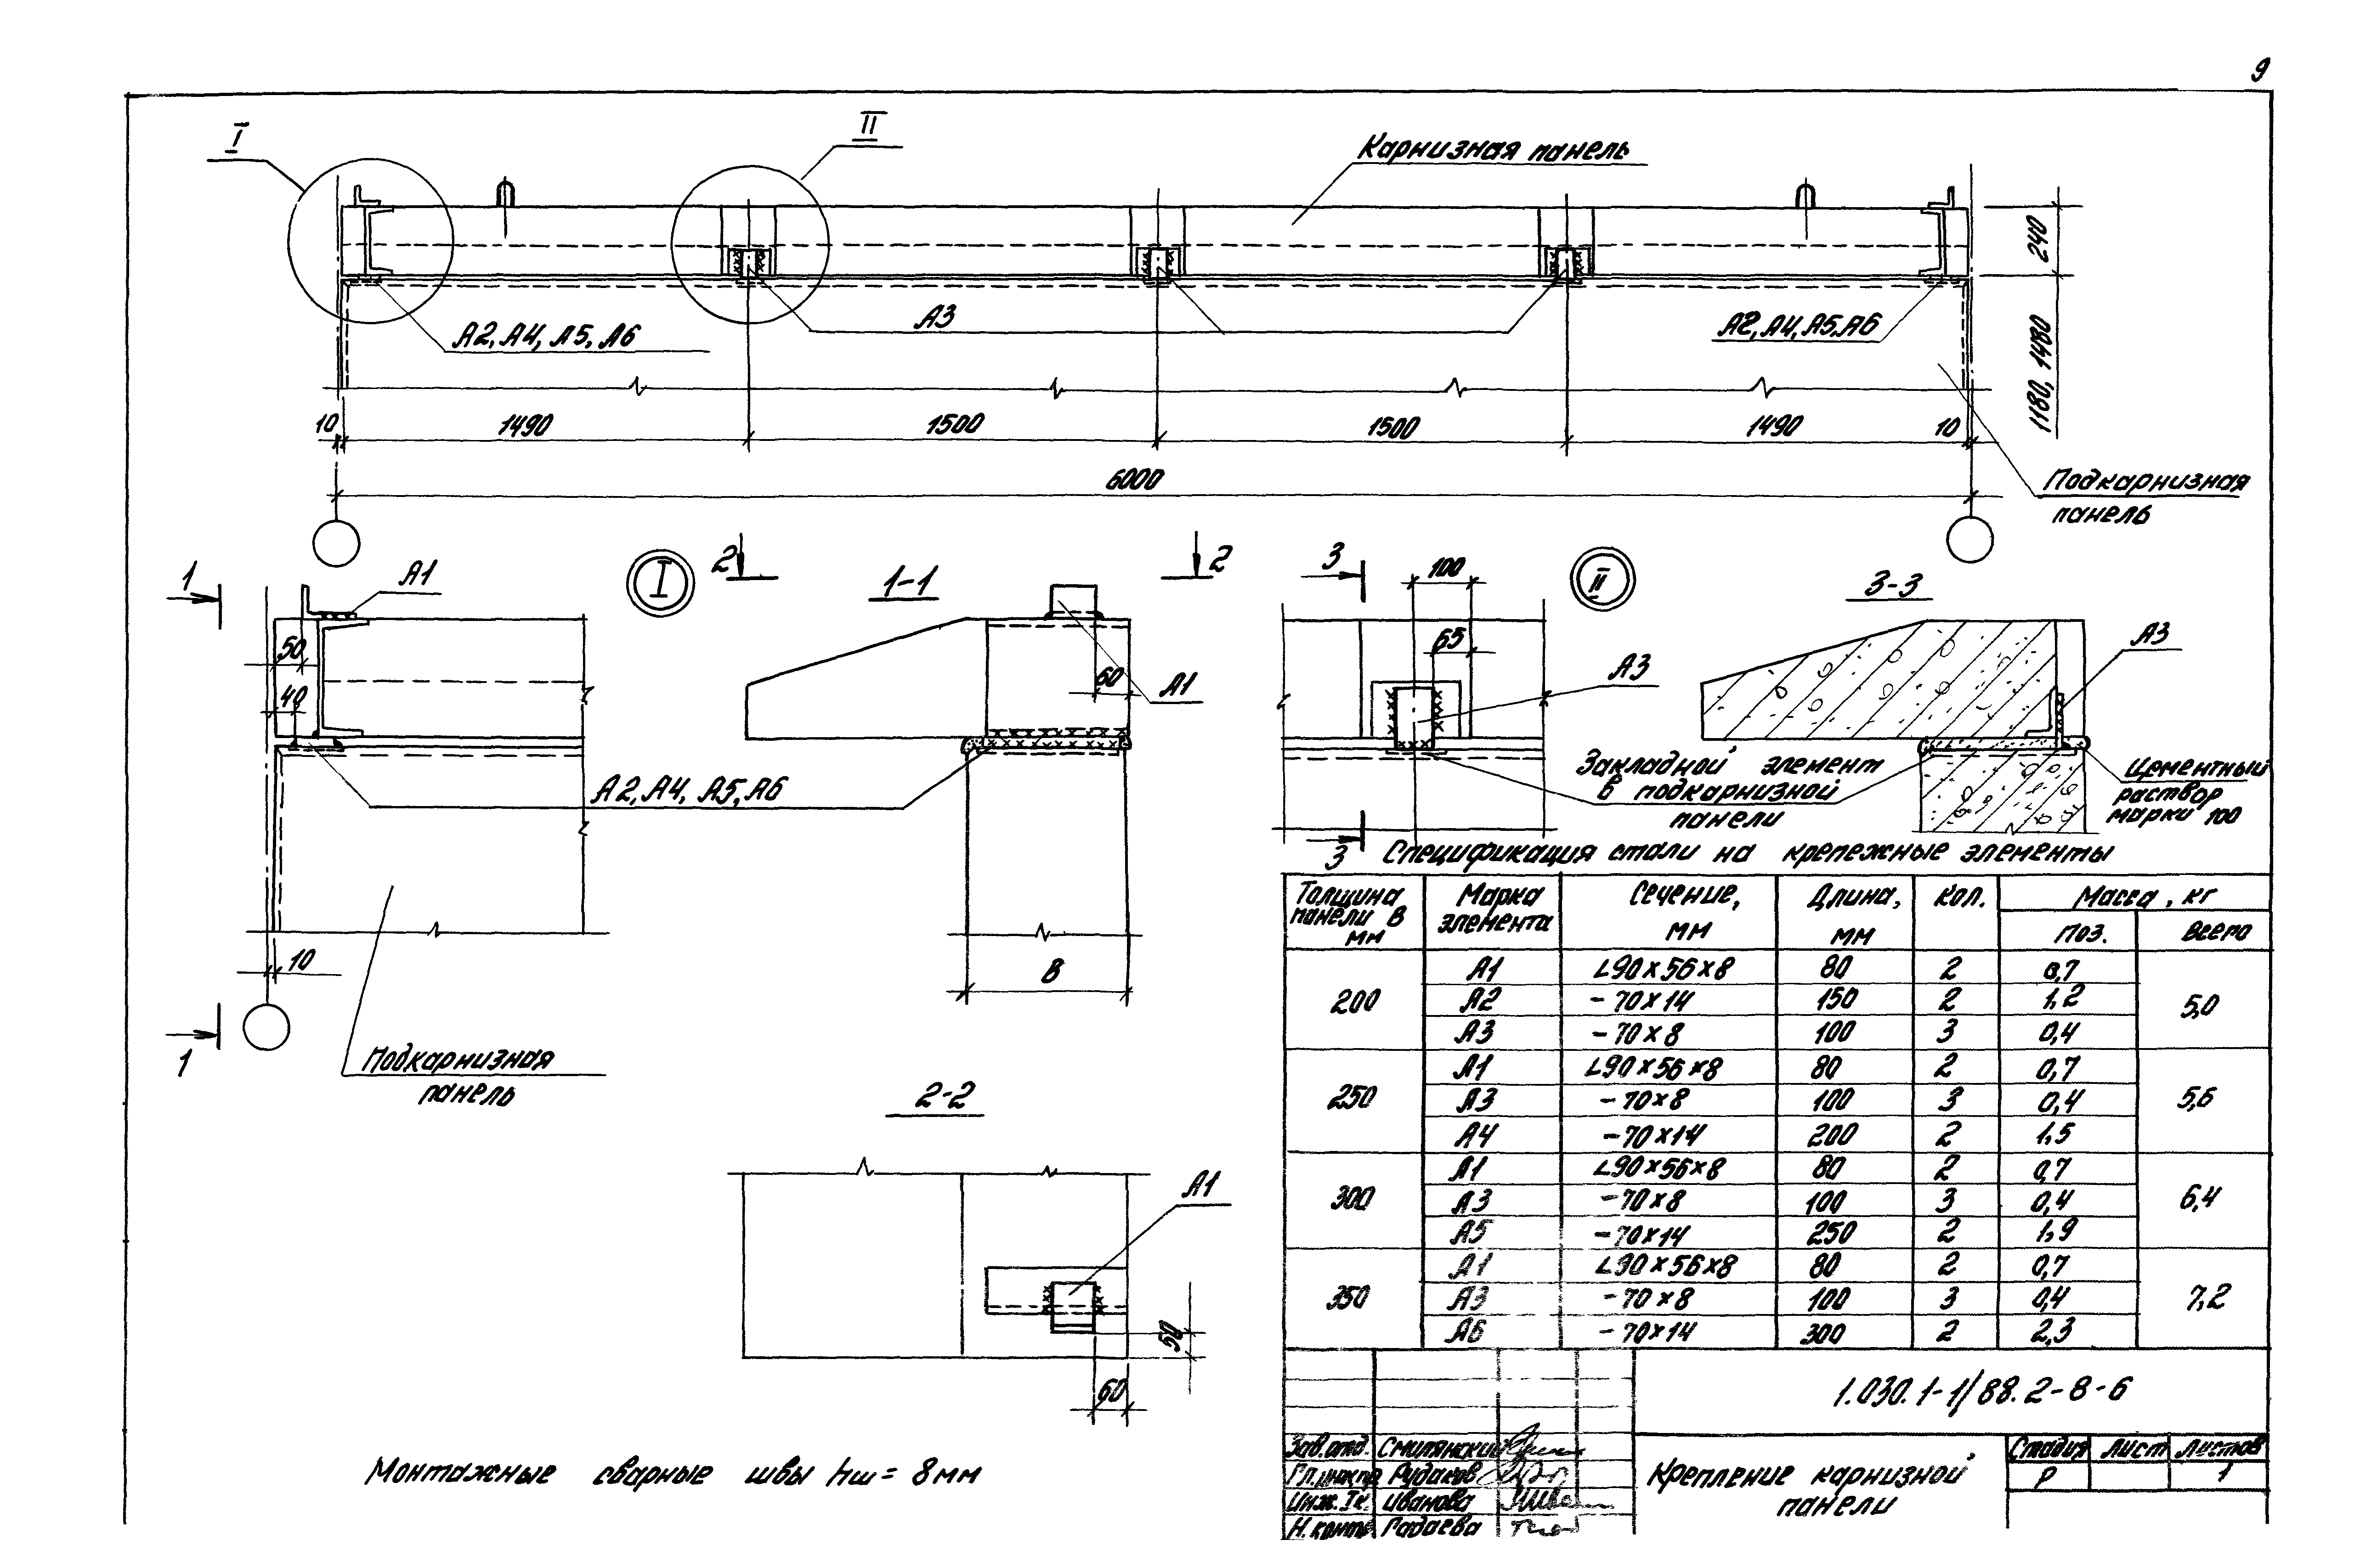 9
I
II
Карнизная панель
240
А3
А2, А4, А5, А6
А2, А4, А5, А6
1180, 1480
10
1490
1500
1500
1490
10
6000
Подкарнизная
панель
1
А1
I
2
1-1
2
3
100
II
3-3
50
40
60
А1
65
А3
А3
А2, А4, А5, А6
Закладной элемент
в подкарнизной
панели
Цементный
раствор
марки 100
3
10
В
1
Подкарнизная
панель
2-2
А1
50
60
Монтажные сварные швы hш = 8 мм
Спецификация стали на крепежные элементы
Толщина панели В мм Марка элемента Сечение, мм Длина, мм Кол. Масса, кг
Поз. Всего
200 А1 L90×56×8 80 2 0,7 5,0
А2 -70×14 150 2 1,2
А3 -70×8 100 3 0,4
250 А1 L90×56×8 80 2 0,7 5,6
А3 -70×8 100 3 0,4
А4 -70×14 200 2 1,5
300 А1 L90×56×8 80 2 0,7 6,4
А3 -70×8 100 3 0,4
А5 -70×14 250 2 1,9
350 А1 L90×56×8 80 2 0,7 7,2
А3 -70×8 100 3 0,4
А6 -70×14 300 2 2,3
1.030.1-1/88.2-8-6
Зав.отд. Смилянский
Гл.инж.пр Рудаков
Инж. Iк. Иванова
Н.контр Гадаева
Крепление карнизной
панели
Стадия Лист Листов
Р 1